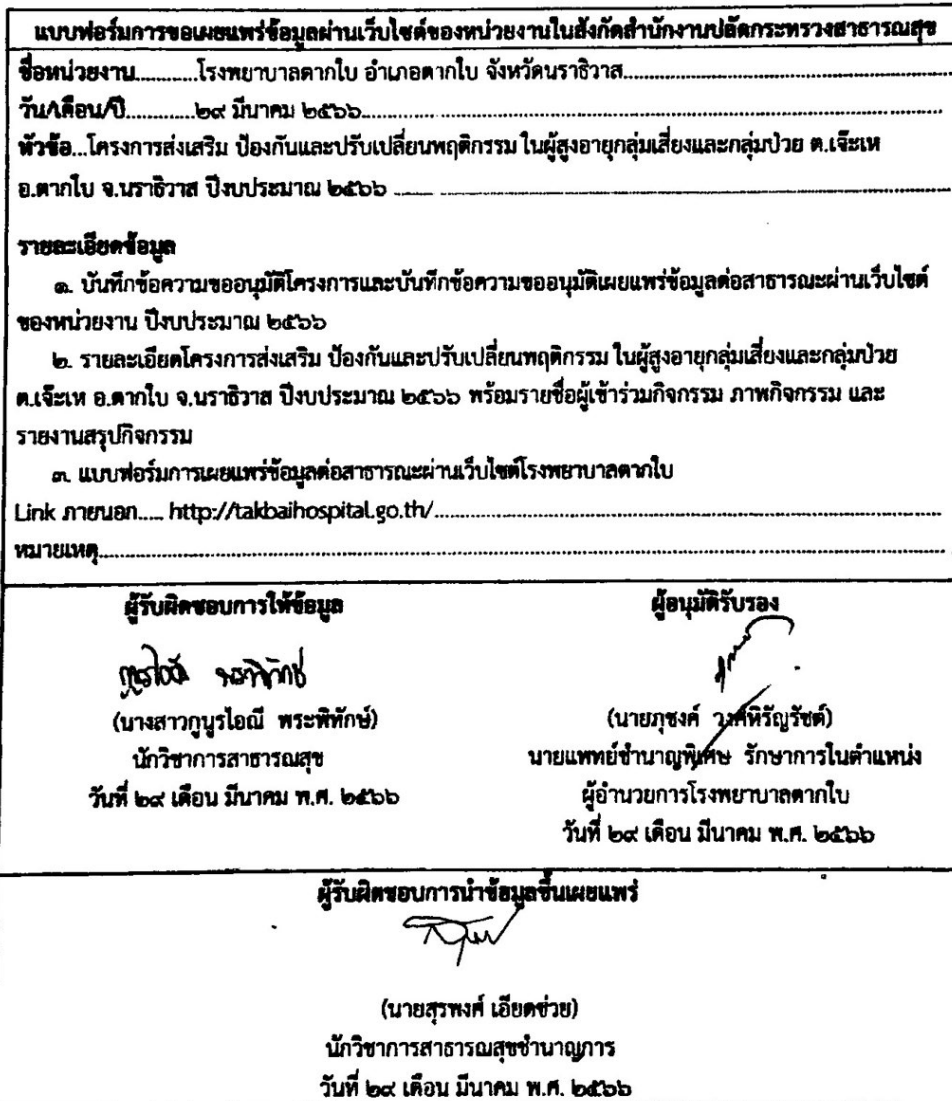 แบบฟอร์มการขอเผยแพร่ข้อมูลผ่านเว็บไซต์ของหน่วยงานในสังกัดสำนักงานปลัดกระทรวงสาธารณสุข
ชื่อหน่วยงาน............โรงพยาบาลตากใบ อำเภอตากใบ จังหวัดนราธิวาส
วัน/เดือน/ปี.............๒๙ มีนาคม ๒๕๖๖
หัวข้อ...โครงการส่งเสริม ป้องกันและปรับเปลี่ยนพฤติกรรม ในผู้สูงอายุกลุ่มเสี่ยงและกลุ่มป่วย ต.เจ๊ะเห
อ.ตากใบ จ.นราธิวาส ปีงบประมาณ ๒๕๖๖
รายละเอียดข้อมูล
๑. บันทึกข้อความขออนุมัติโครงการและบันทึกข้อความขออนุมัติเผยแพร่ข้อมูลต่อสาธารณะผ่านเว็บไซต์
ของหน่วยงาน ปีงบประมาณ ๒๕๖๖
๒. รายละเอียดโครงการส่งเสริม ป้องกันและปรับเปลี่ยนพฤติกรรม ในผู้สูงอายุกลุ่มเสี่ยงและกลุ่มป่วย
ต.เจ๊ะเห อ.ตากใบ จ.นราธิวาส ปีงบประมาณ ๒๕๖๖ พร้อมรายชื่อผู้เข้าร่วมกิจกรรม ภาพกิจกรรม และ
รายงานสรุปกิจกรรม
๓. แบบฟอร์มการเผยแพร่ข้อมูลต่อสาธารณะผ่านเว็บไซต์โรงพยาบาลตากใบ
Link ภายนอก..... http://takbaihospital.go.th/
หมายเหตุ
ผู้รับผิดชอบการให้ข้อมูล
(นางสาวกูนูรไอณี พระพิทักษ์)
นักวิชาการสาธารณสุข
วันที่ ๒๙ เดือน มีนาคม พ.ศ. ๒๕๖๖
ผู้อนุมัติรับรอง
(นายภุชงค์ วงศ์หิรัญรัชต์)
นายแพทย์ชำนาญพิเศษ รักษาการในตำแหน่ง
ผู้อำนวยการโรงพยาบาลตากใบ
วันที่ ๒๙ เดือน มีนาคม พ.ศ. ๒๕๖๖
ผู้รับผิดชอบการนำข้อมูลขึ้นเผยแพร่
(นายสุรพงศ์ เอียดช่วย)
นักวิชาการสาธารณสุขชำนาญการ
วันที่ ๒๙ เดือน มีนาคม พ.ศ. ๒๕๖๖